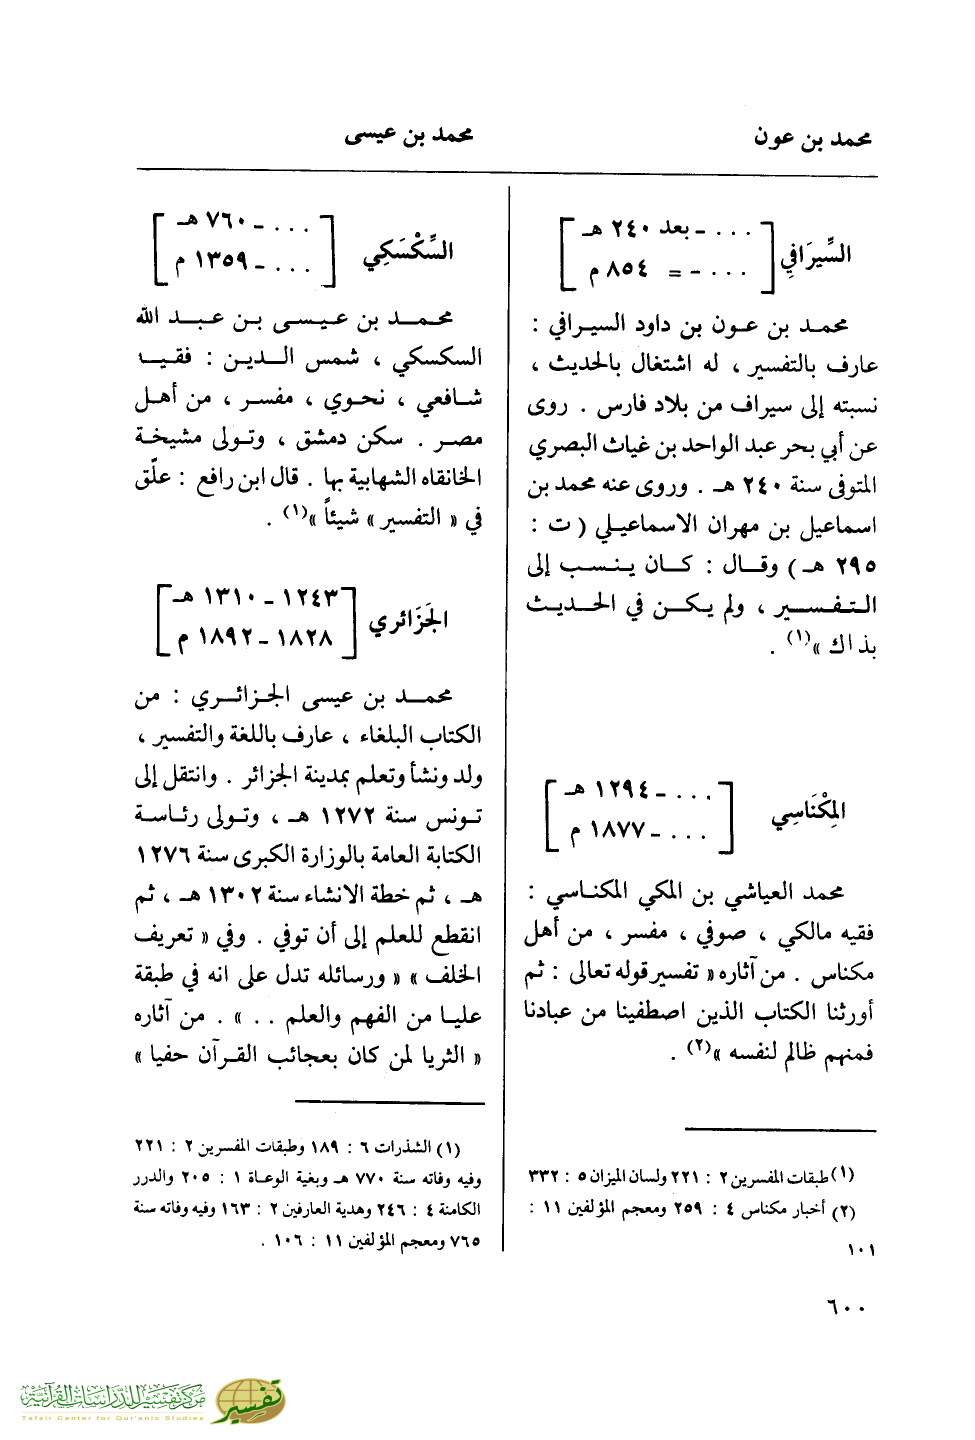 محمد بن عون
محمد بن عيسى
السِّيرَافِي
[ ... - بعد ٢٤٠ هـ
... - = ٨٥٤ م ]
محمد بن عون بن داود السيرافي :
عارف بالتفسير ، له اشتغال بالحديث ،
نسبته إلى سيراف من بلاد فارس . روى
عن أبي بحر عبد الواحد بن غياث البصري
المتوفى سنة ٢٤٠ هـ . وروى عنه محمد بن
اسماعيل بن مهران الاسماعيلي ( ت :
٢٩٥ هـ ) وقال : كان ينسب إلى
التفسير ، ولم يكن في الحديث
بذاك »(١) .
المِكْنَاسِي
[ ... - ١٢٩٤ هـ
... - ١٨٧٧ م ]
محمد العياشي بن المكي المكناسي :
فقيه مالكي ، صوفي ، مفسر ، من أهل
مكناس . من آثاره « تفسير قوله تعالى : ثم
أورثنا الكتاب الذين اصطفينا من عبادنا
فمنهم ظالم لنفسه »(٢) .
(١) طبقات المفسرين ٢ : ٢٢١ ولسان الميزان ٥ : ٣٣٢
(٢) أخبار مكناس ٤ : ٢٥٩ ومعجم المؤلفين ١١ :
١٠١
السِّكْسَكِي
[ ... - ٧٦٠ هـ
... - ١٣٥٩ م ]
محمد بن عيسى بن عبد الله
السكسكي ، شمس الدين : فقيه
شافعي ، نحوي ، مفسر ، من أهل
مصر . سكن دمشق ، وتولى مشيخة
الخانقاه الشهابية بها . قال ابن رافع : علّق
في « التفسير » شيئاً »(١) .
الجَزَائري
[ ١٢٤٣ - ١٣١٠ هـ
١٨٢٨ - ١٨٩٢ م ]
محمد بن عيسى الجزائري : من
الكتاب البلغاء ، عارف باللغة والتفسير ،
ولد ونشأ وتعلم بمدينة الجزائر . وانتقل إلى
تونس سنة ١٢٧٢ هـ ، وتولى رئاسة
الكتابة العامة بالوزارة الكبرى سنة ١٢٧٦
هـ ، ثم خطة الانشاء سنة ١٣٠٢ هـ ، ثم
انقطع للعلم إلى أن توفي . وفي « تعريف
الخلف » « ورسائله تدل على انه في طبقة
عليا من الفهم والعلم .. » . من آثاره
« الثريا لمن كان بعجائب القرآن حفيا »
(١) الشذرات ٦ : ١٨٩ وطبقات المفسرين ٢ : ٢٢١
وفيه وفاته سنة ٧٧٠ هـ وبغية الوعاة ١ : ٢٠٥ والدرر
الكامنة ٤ : ٢٤٦ وهدية العارفين ٢ : ١٦٣ وفيه وفاته سنة
٧٦٥ ومعجم المؤلفين ١١ : ١٠٦ .
٦٠٠
مركز تفسير للدراسات القرآنية
Tafsir Center for Qur'anic Studies
تفسير